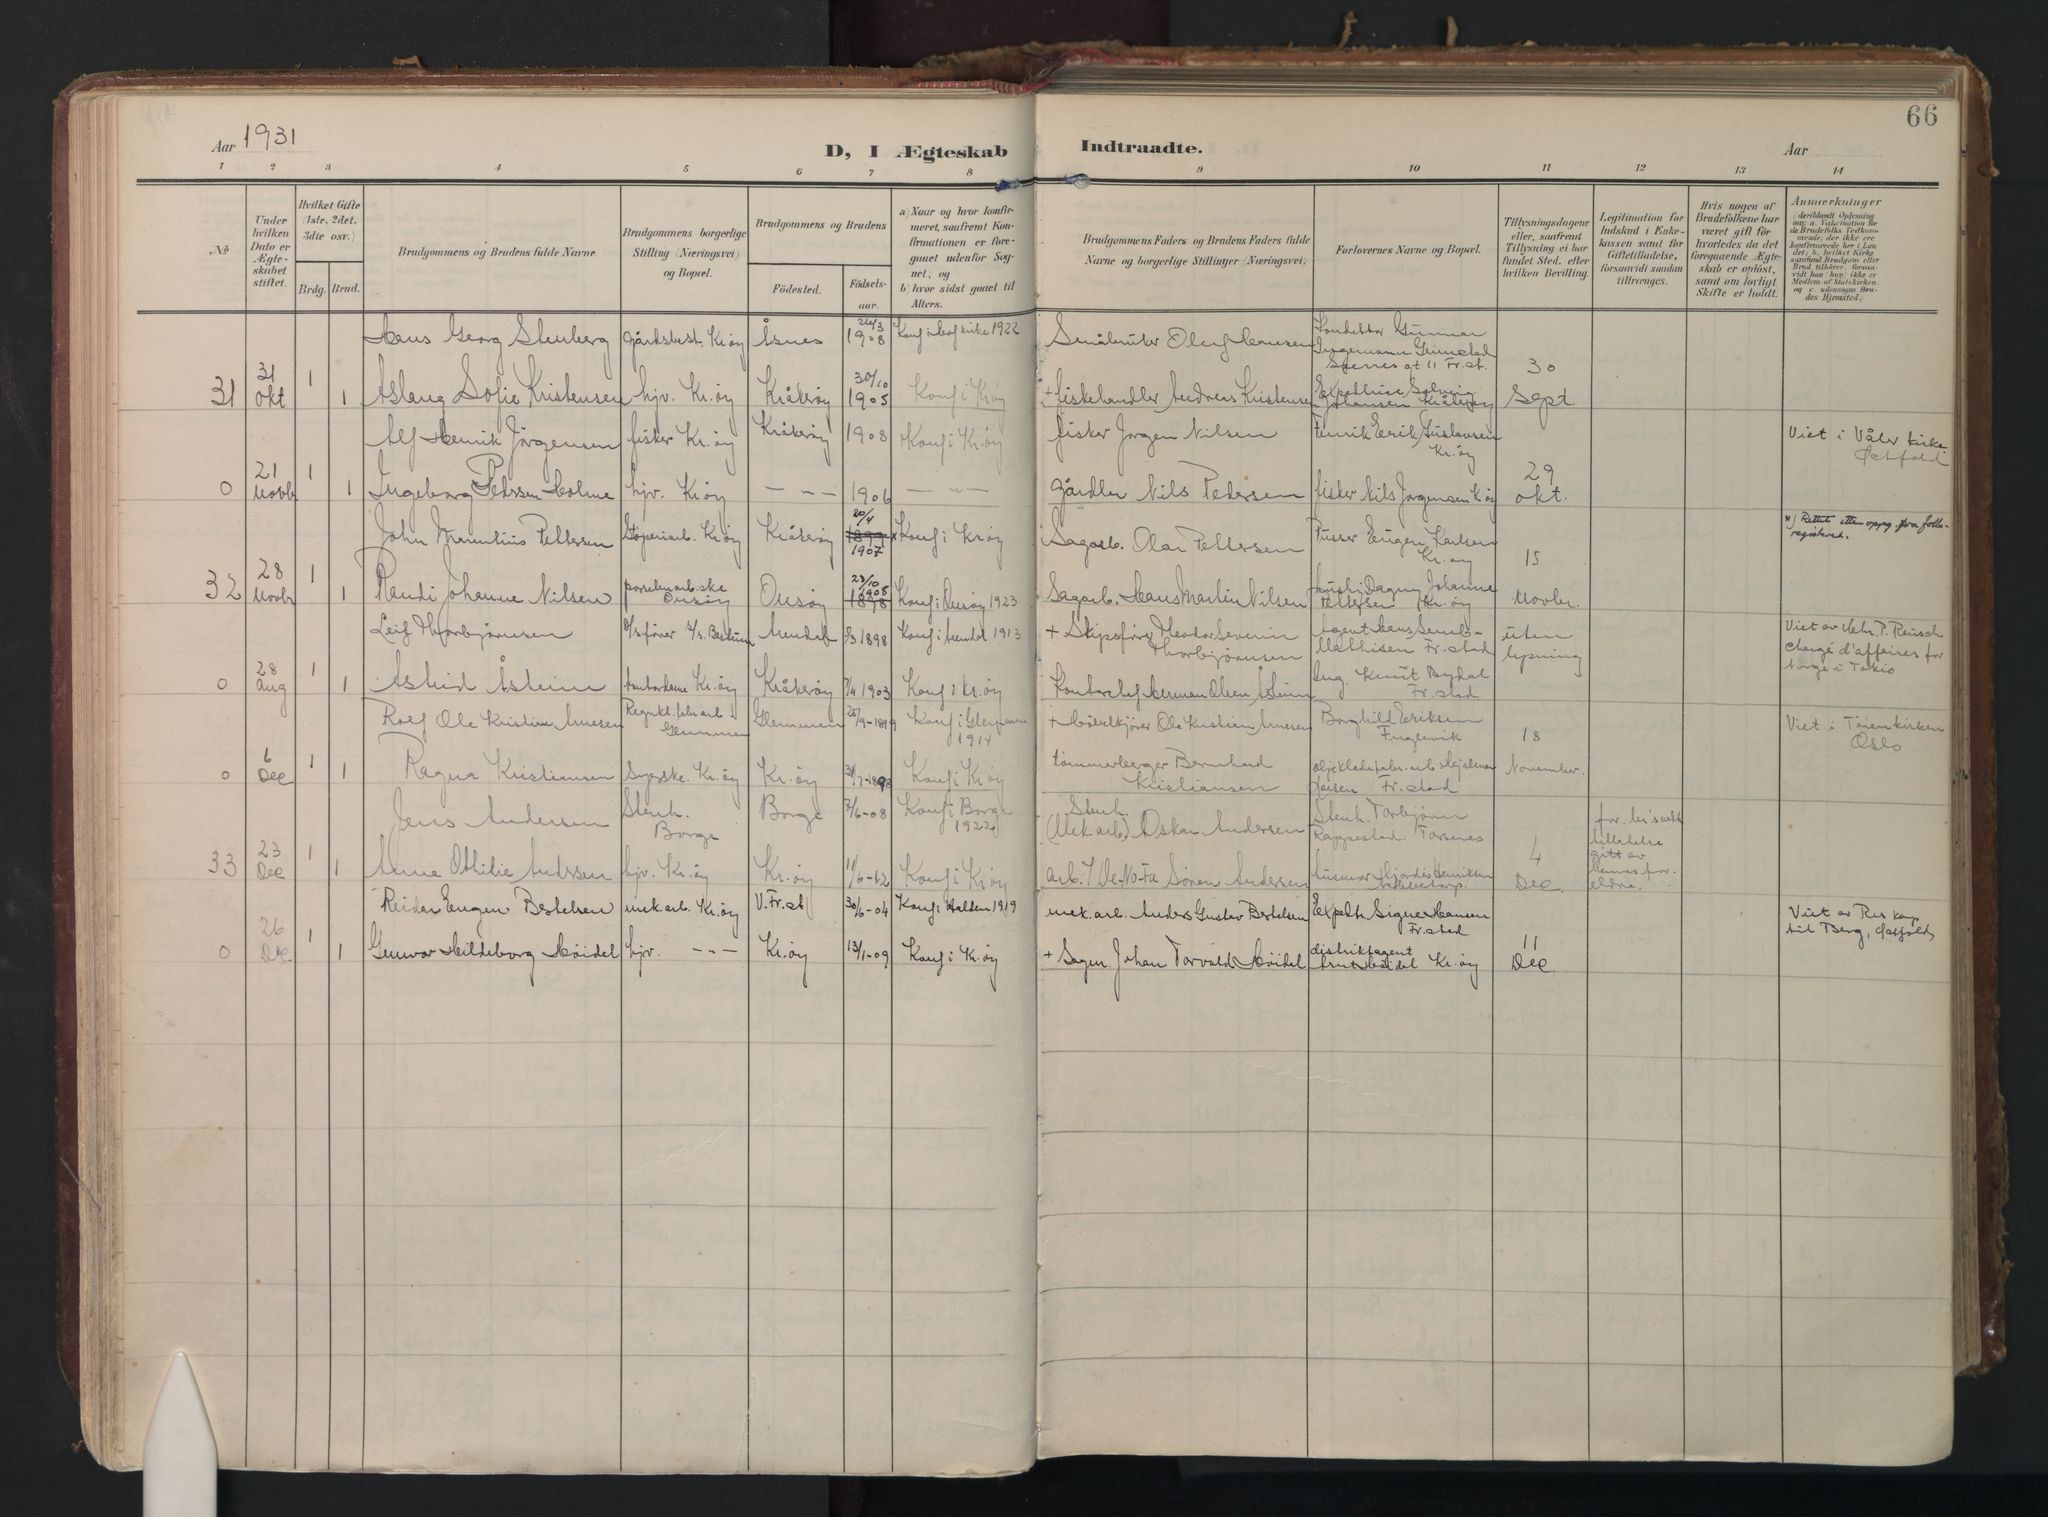 66
Aar 1931
D, I Ægteskab Indtraadte.
Aar
1 2 3 4 5 6 7 8 9 10 11 12 13 14
No.
Under hvilken Dato er Ægteskabet stiftet.
Hvilket Gifte (1ste, 2det, 3die osv.)
Brdg. Brud.
Brudgommens og Brudens fulde Navne
Brudgommens borgerlige Stilling (Næringsvei) og Bopæl.
Brudgommens og Brudens
Födested. Födselsaar.
a) Naar og hvor konfirmeret, saafremt Konfirmationen er foregaaet udenfor Sognet, og
b) hvor sidst gaaet til Alters.
Brudgommens Faders og Brudens Faders fulde Navne og borgerlige Stillinger (Næringsvei)
Forlovernes Navne og Bopæl.
Tillysningsdagene eller, saafremt Tillysning ei har fundet Sted, efter hvilken Bevilling.
Legitimation for Indskud i Enkekassen samt for Giftetilladelse, forsaavidt saadan tiltrænges.
Hvis nogen af Brudefolkene har været gift för hvorledes da det foregaaende Ægteskab er oplöst, samt om lovligt Skifte er holdt.
Anmerkninger
Hans Georg Stenberg gårdsbest. Kr.øy Åsnes 24/3 1908 Konf i kirke 1922 Småbruker Oluf Hansen Konduktør Gunnar Ingemann Grimstad gt 11 Fr.st. 30
31 31 Okt 1 1 Aslaug Sofie Kristensen hjv. Kr.øy Kråkerøy 30/10 1905 Konf i Kr.øy + fiskehandler Andreas Kristensen Expeditrice Solveig Johansen Kråkerøy Sept.
Alf Henrik Jörgensen fisker Kr.øy Kråkerøy 1908 Konf i Kr.øy fisker Jørgen Nilsen Erik Gustavsen Kr.øy Viet i Våler kirke Østfold
0 21 Novbr 1 1 Ingeborg Pedersen Holme hjv. Kr.øy — " — 1906 — " — Nils Pedersen fisker Nils Jørgensen Kr.øy 29 Okt.
John Marentius Pettersen Støperiarb. Kr.øy Kråkerøy 20/4 1899 1907 x Konf i Kr.øy Sagarb. Olai Pettersen Pusser Eugen Karlsen Kr.øy x) Rettet etter oppg. fra folkeregisteret.
32 28 Novbr 1 1 Randi Johanne Nilsen porselenarb.ske Onsøy Onsøy 23/10 1908 1898 Konf i Onsøy 1923 Sagarb. Hans Martin Nilsen Dagny Johanne Pettersen Kr.øy 15 Novbr.
Leif Thorbjørnsen D/s.fører Arendal 5/3 1898 Konf i Arendal 1913 + Skipsfører Severin Thorbjørnsen Agent Mathisen Fr.stad uten lysning Viet av P. Reusch chargé d'affaires for Norge i Tokio
0 28 Aug 1 1 Astrid Åsheim kontordame Kr.øy Kråkerøy 7/4 1903 Konf i Kr.øy Kontorchef Herman Olsen Åsheim Ing. Knut Fr.stad
Rolf Ole Kristian Arnesen Glemmen Glemmen 25/9-1899 Konf i Glemmen 1914 + Ole Kristian Arnesen Borghild Eriksen Fuglevik 18 Viet i Tøienkirken Oslo
0 6 Dec 1 1 Ragna Kristiansen Syerske. Kr.øy Kr.øy 31/7-1898 Konf i Kr.øy tømmerberger Bernhard Kristiansen Hjalmar Fr.stad November.
Jens Andersen Stenh. Borge Borge 7/6-08 Konf i Borge 1922 Stenh. (Mek.arb.) Oskar Andersen Stenh. Torbjørn Rappestad Torsnes for tillatelse gitt av hennes foreldre.
33 23 Dec 1 1 Anna Othilie Andersen hjv. Kr.øy Kr.øy 11/6-12 Konf i Kr.øy arb. / De-No-Fa Søren Andersen Hjördis Henriksen 4 Dec
Reidar Eugen Bertelsen mek.arb. Kr.øy V.Fr.st 30/6-04 Konf i Halden 1919 mek.arb. Anders Gustav Bertelsen Expedtr. Signe Hansen Fr.stad Viet av Res kap til Berg, Østfold
0 26 Dec 1 1 Gunvor Hildeborg Höidal hjv. — " — Kr.øy 13/1-09 Konf i Kr.øy + Sagm. Johan Torvald Höidal distriktagent Höidal Kr.øy 11 Dec.